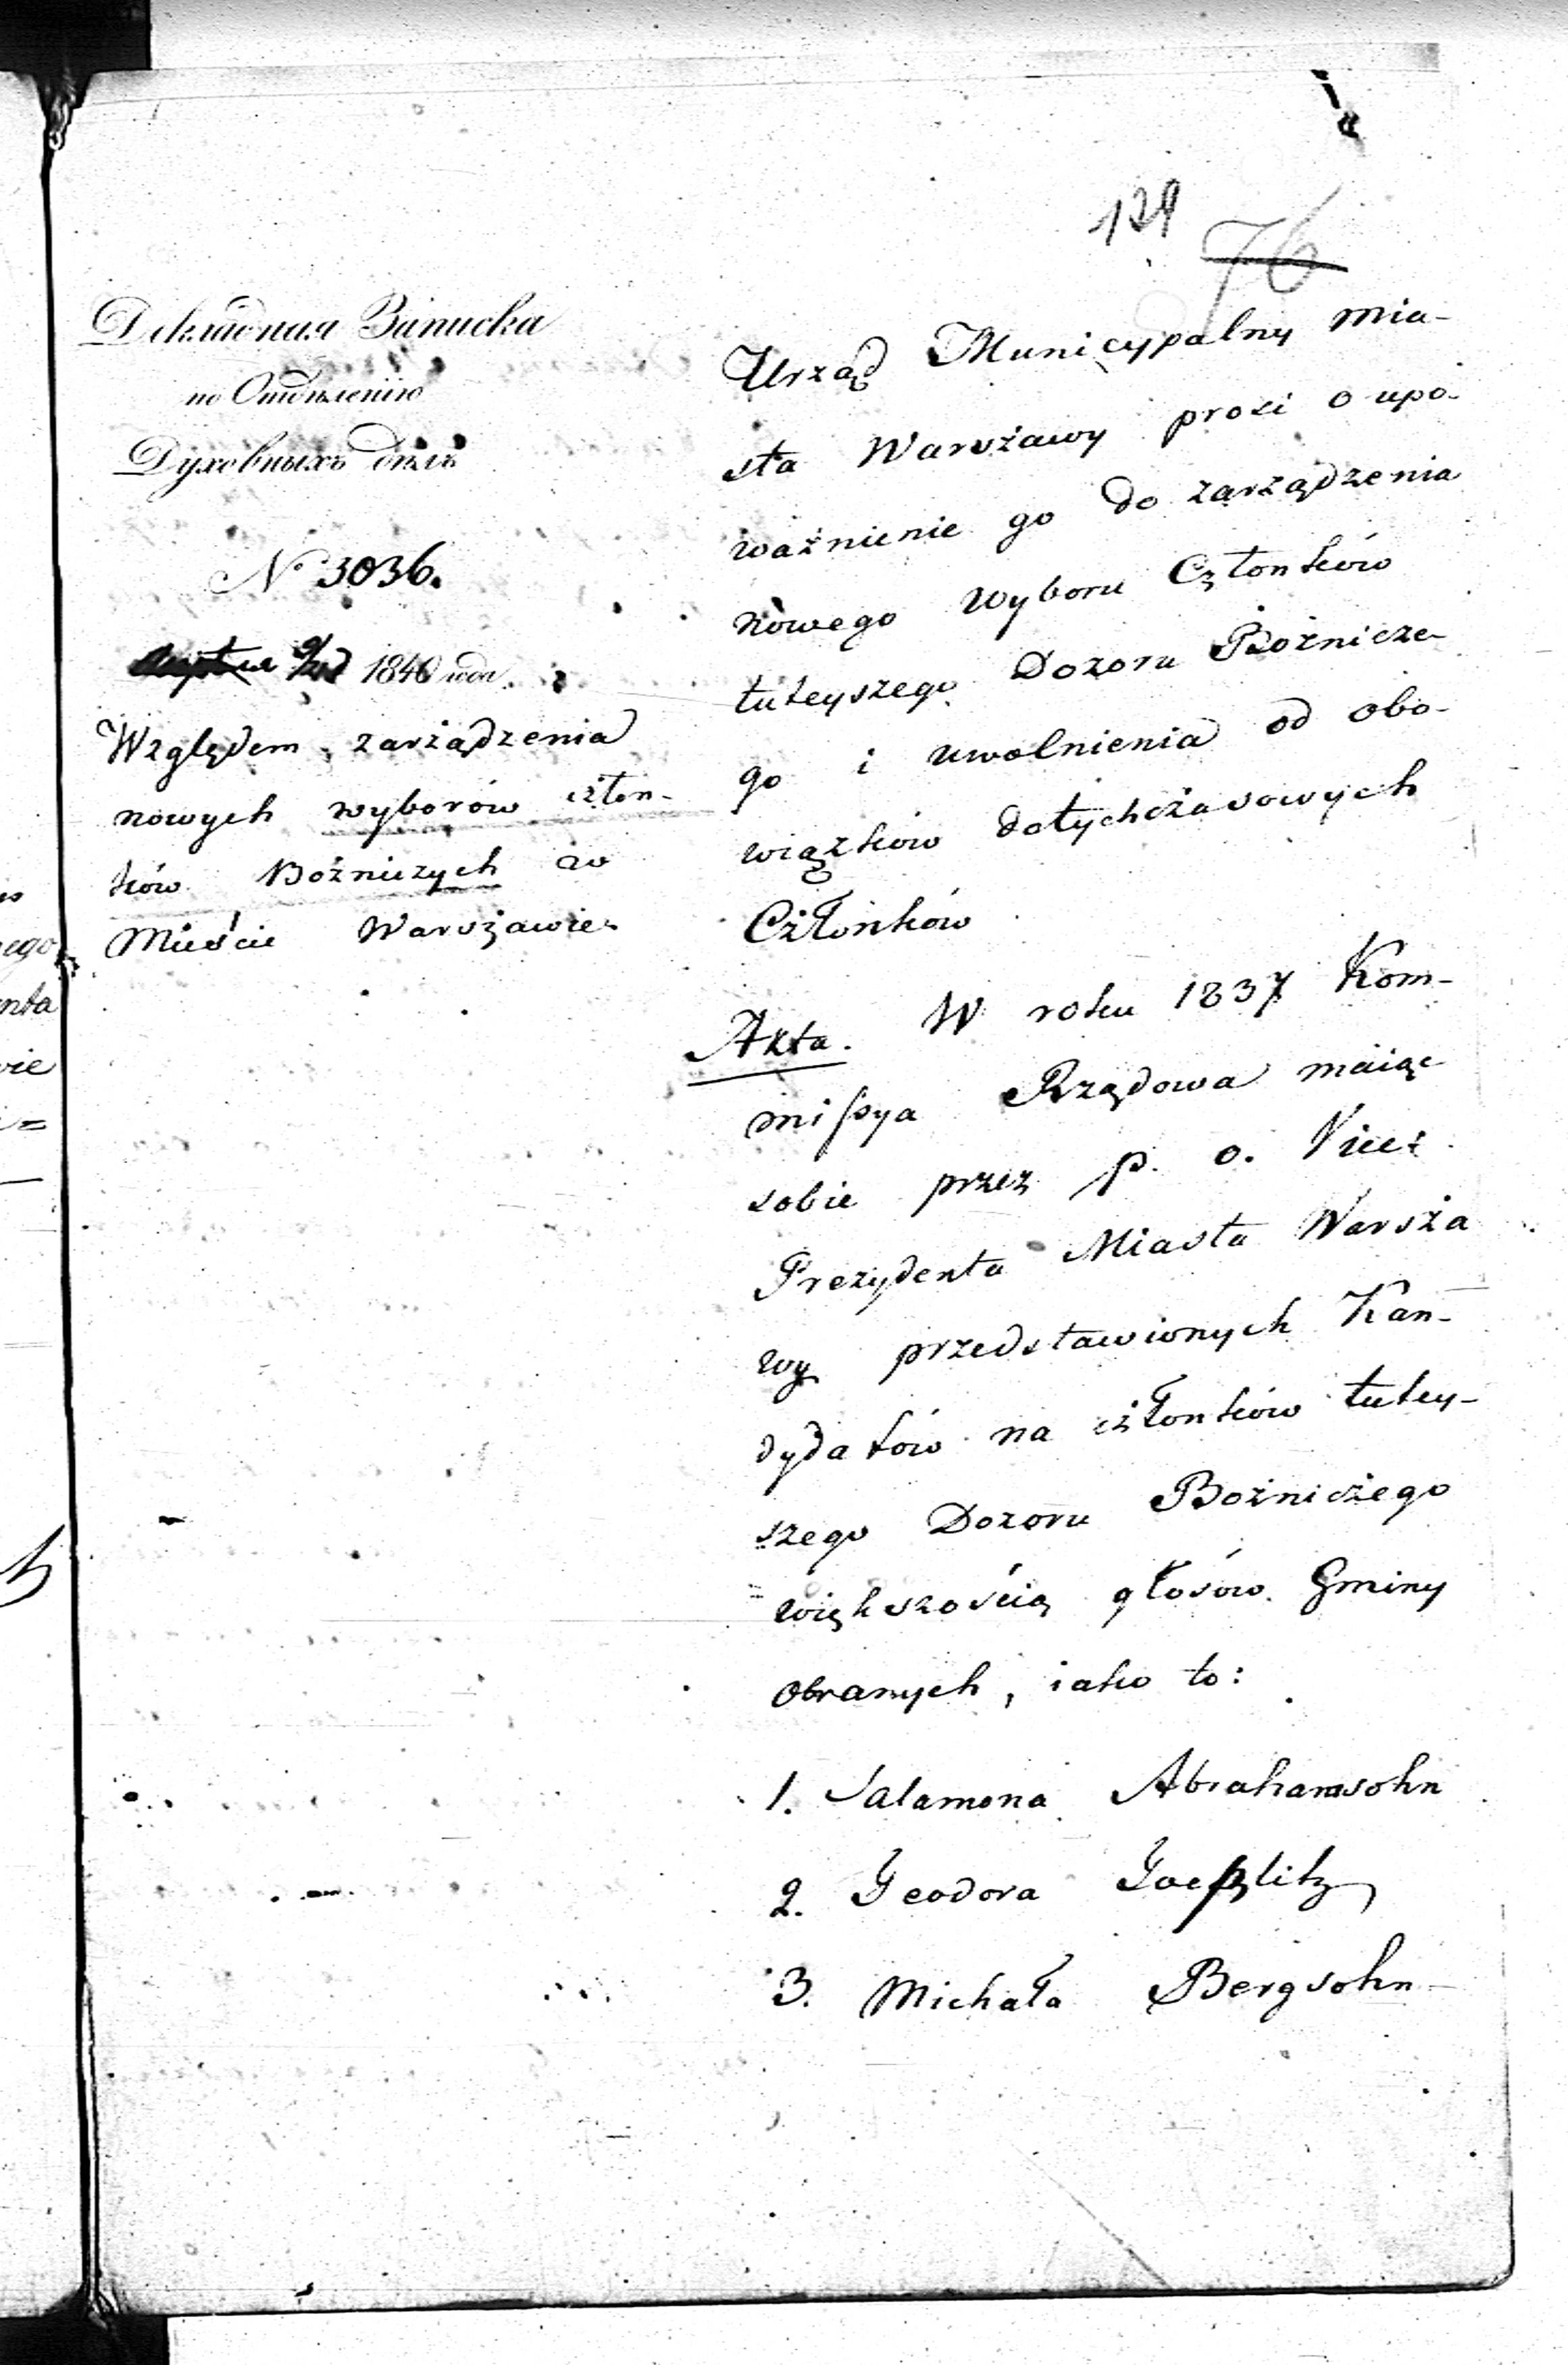 129
76
Докладная Записка
по Отдѣленію
Духовныхъ дѣлъ
N 3036.
1840 года.
Względem zarządzenia
nowych wyborów człon-
ków Bożniczych w
Mieście Warszawie.
Urząd Municypalny mia-
sta Warszawy prosi o upo-
ważnienie go do zarządzenia
nowego wyboru Członków
tuteyszego Dozoru Bożnicze-
go i uwolnienia od obo-
wiązków dotychczasowych
Członków
Akta. W roku 1837 Kom-
missya Rządowa maiąc
sobie przez p. o. Vice:
Prezydenta Miasta Warsza
wy przedstawionych Kan-
dydatów na członków tutey-
szego Dozoru Bożniczego
większością głosów Gminy
obranych, iako to:
1. Salamona Abrahamsohn
2. Teodora Toeplitz
3. Michała Bergsohn